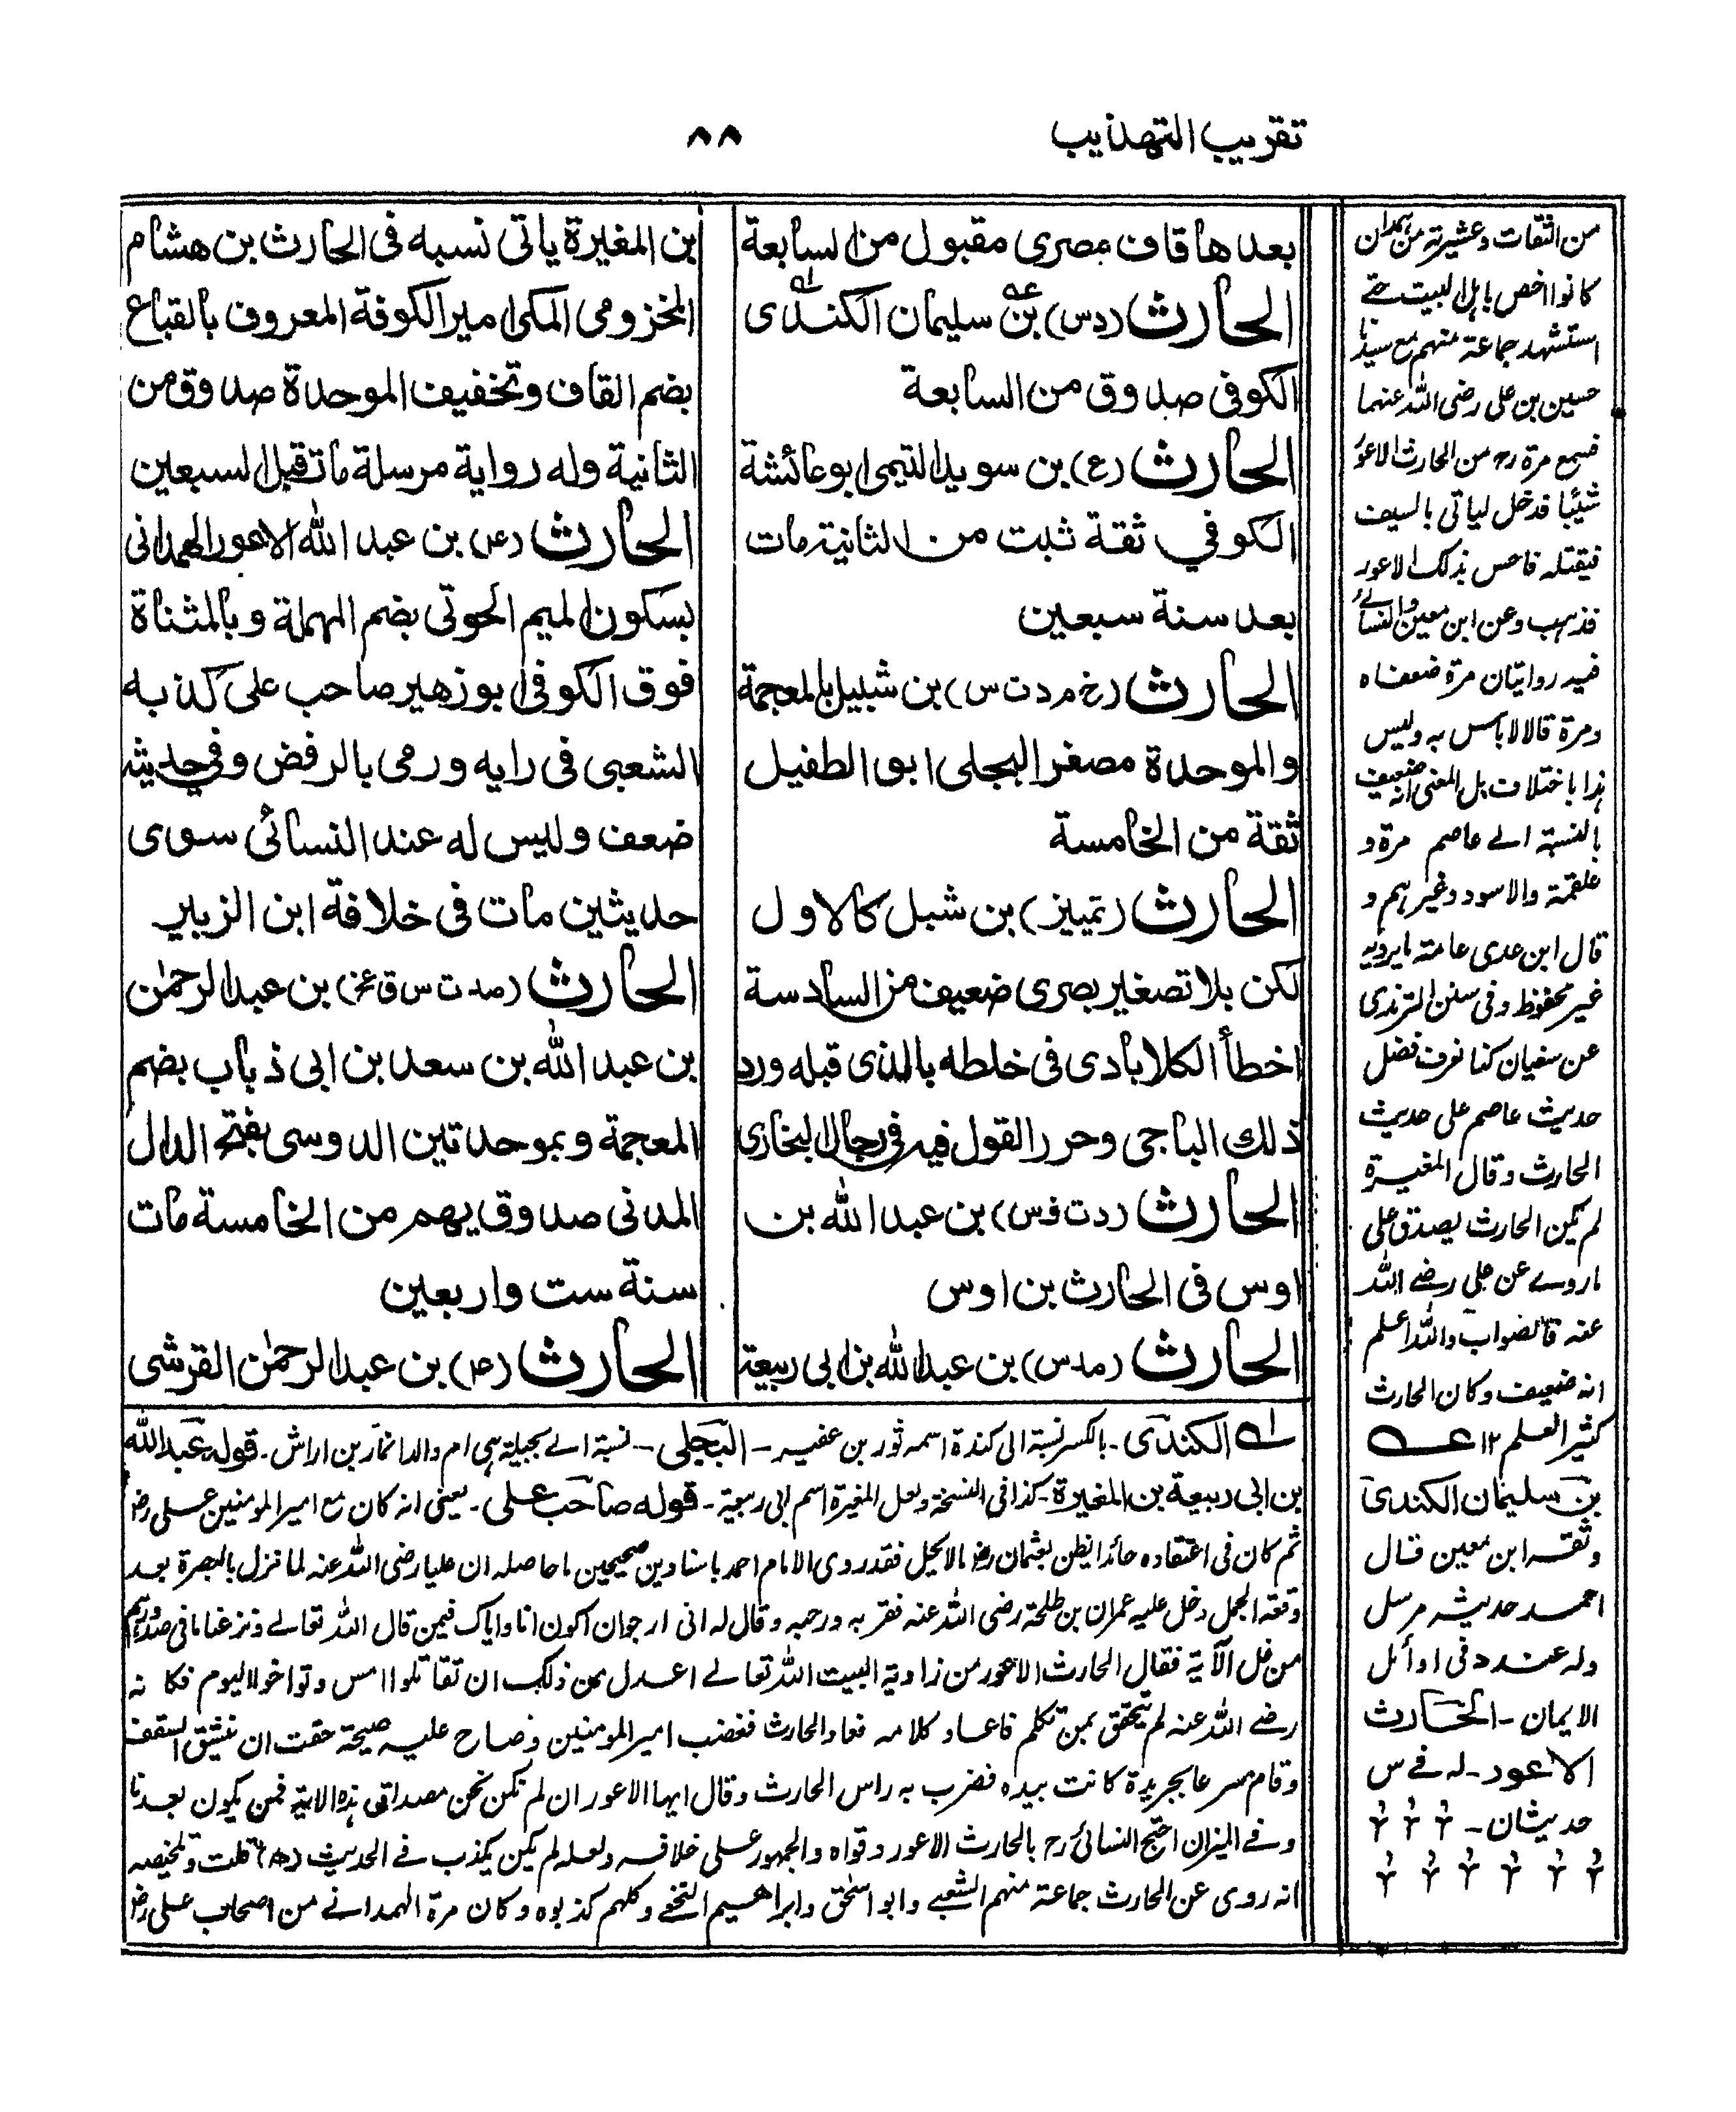 تقریب التهذیب
٨٨
بعدها قاف مصری مقبول من السابعة
الحارث (د س) بن سلیمان الکندی
الکوفی صدوق من السابعة
الحارث (ع) بن سوید التیمی ابو عائشة
الکوفی ثقة ثبت من الثانیة مات
بعد سنة سبعین
الحارث (خ م د ت س) بن شبیل بالمعجمة
والموحدة مصغر البجلی ابو الطفیل
ثقة من الخامسة
الحارث (تمییز) بن شبل کالاول
لکن بلا تصغیر بصری ضعیف من السادسة
اخطأ الکلاباذی فی خلطه بالذی قبله ورد
ذلك الباجی وحرر القول فیه فی رجال البخاری
الحارث (د ت س) بن عبد الله بن
اوس فی الحارث بن اوس
الحارث (مد س) بن عبد الله بن ابی ربیعة
بن المغیرة یاتی نسبه فی الحارث بن هشام
المخزومی المکی امیر الکوفة المعروف بالقباع
بضم القاف وتخفیف الموحدة صدوق من
الثانیة وله روایة مرسلة مات قبل السبعین
الحارث (عه) بن عبد الله الاعور الهمدانی
بسکون المیم الحوتی بضم المهملة وبالمثناة
فوق الکوفی ابو زهیر صاحب علی کذبه
الشعبی فی رایه ورمی بالرفض وفی حدیثه
ضعف ولیس له عند النسائی سوی
حدیثین مات فی خلافة ابن الزبیر
الحارث (مد ت س ق عخ) بن عبد الرحمٰن
بن عبد الله بن سعد بن ابی ذباب بضم
المعجمة وبموحدتین الدوسی بفتح الدال
المدنی صدوق یهم من الخامسة مات
سنة ست واربعین
الحارث (عه) بن عبد الرحمٰن القرشی
له الکندی۔ بالکسر نسبة الی کندة اسمه ثور بن عفیر۔ البجلی۔ نسبة الے بجیلة ہی ام والد انمار بن اراش۔ قوله عبد الله
بن ابی ربیعة بن المغیرة۔ کذا فی النسخة ولعل المغیرة اسم ابی ربیعة۔ قوله صاحب علی۔ یعنی انه کان مع امیر المومنین علی رض
ثم کان فی اعتقاده حائدا یظن بعثمان رض مالا یحل فقد روی الامام احمد باسنادین صحیحین ما حاصله ان علیا رضی الله عنه لما نزل بالبصرة بعد
وقعة الجمل دخل علیه عمران بن طلحة رضی الله عنه فقربه ورحبه وقال له انی ارجو ان اکون انا وایاک فیمن قال الله تعالے ونزعنا ما فی صدورهم
من غل الآیة فقال الحارث الاعور من زاویة البیت الله تعالے اعدل من ذلک ان تقاتلوا امس وتواخوا الیوم فکانه
رضے الله عنه لم یتحقق بمن تکلم فاعاد کلامه فعاد الحارث فغضب امیر المومنین وصاح علیه صیحة حقت ان ینشق السقف
وقام مسرعا بجریدة کانت بیده فضرب به راس الحارث وقال ایها الاعور ان لم نکن نحن مصداق هذه الایة فمن یکون بعدنا
وفے المیزان احتج النسائی رح بالحارث الاعور وقواه والجمهور علی خلافه ولعله لم یکن یکذب فے الحدیث قلت وتلخیصه
انه روی عن الحارث جماعة منهم الشعبے وابو اسحٰق وابراهیم النخعے وکلهم کذبوه وکان مرة الهمدانے من اصحاب علی رض
من الثقات وعشیرته من همدان
کانوا اخص باهل البیت حتے
استشهد جماعة منهم مع سیدنا
حسین بن علی رضی الله عنهما
فسمع مرة رح من الحارث الاعور
شیئا فدخل لیاتی بالسیف
فیقتله فاحس بذلک الاعور
فذهب وعن ابن معین والنسائے
فیه روایتان مرة ضعفاه
ومرة قالا لا باس به ولیس
هذا باختلاف بل المعنی انه ضعیف
بالنسبة الے عاصم مرة و
علقمة والاسود وغیرهم و
قال ابن عدی عامة ما یرویه
غیر محفوظ وفی سنن الترمذی
عن سفیان کنا نعرف فضل
حدیث عاصم علی حدیث
الحارث وقال المغیرة
لم یکن الحارث یصدق علی
ما روے عن علی رضے الله
عنه فالصواب والله اعلم
انه ضعیف وکان الحارث
کثیر العلم ١٢ عه
بن سلیمان الکندی
وثقه ابن معین قال
احمد حدیثه مرسل
وله عند د فی اوائل
الایمان۔ الحارث
الاعور۔ له فے س
حدیثان۔